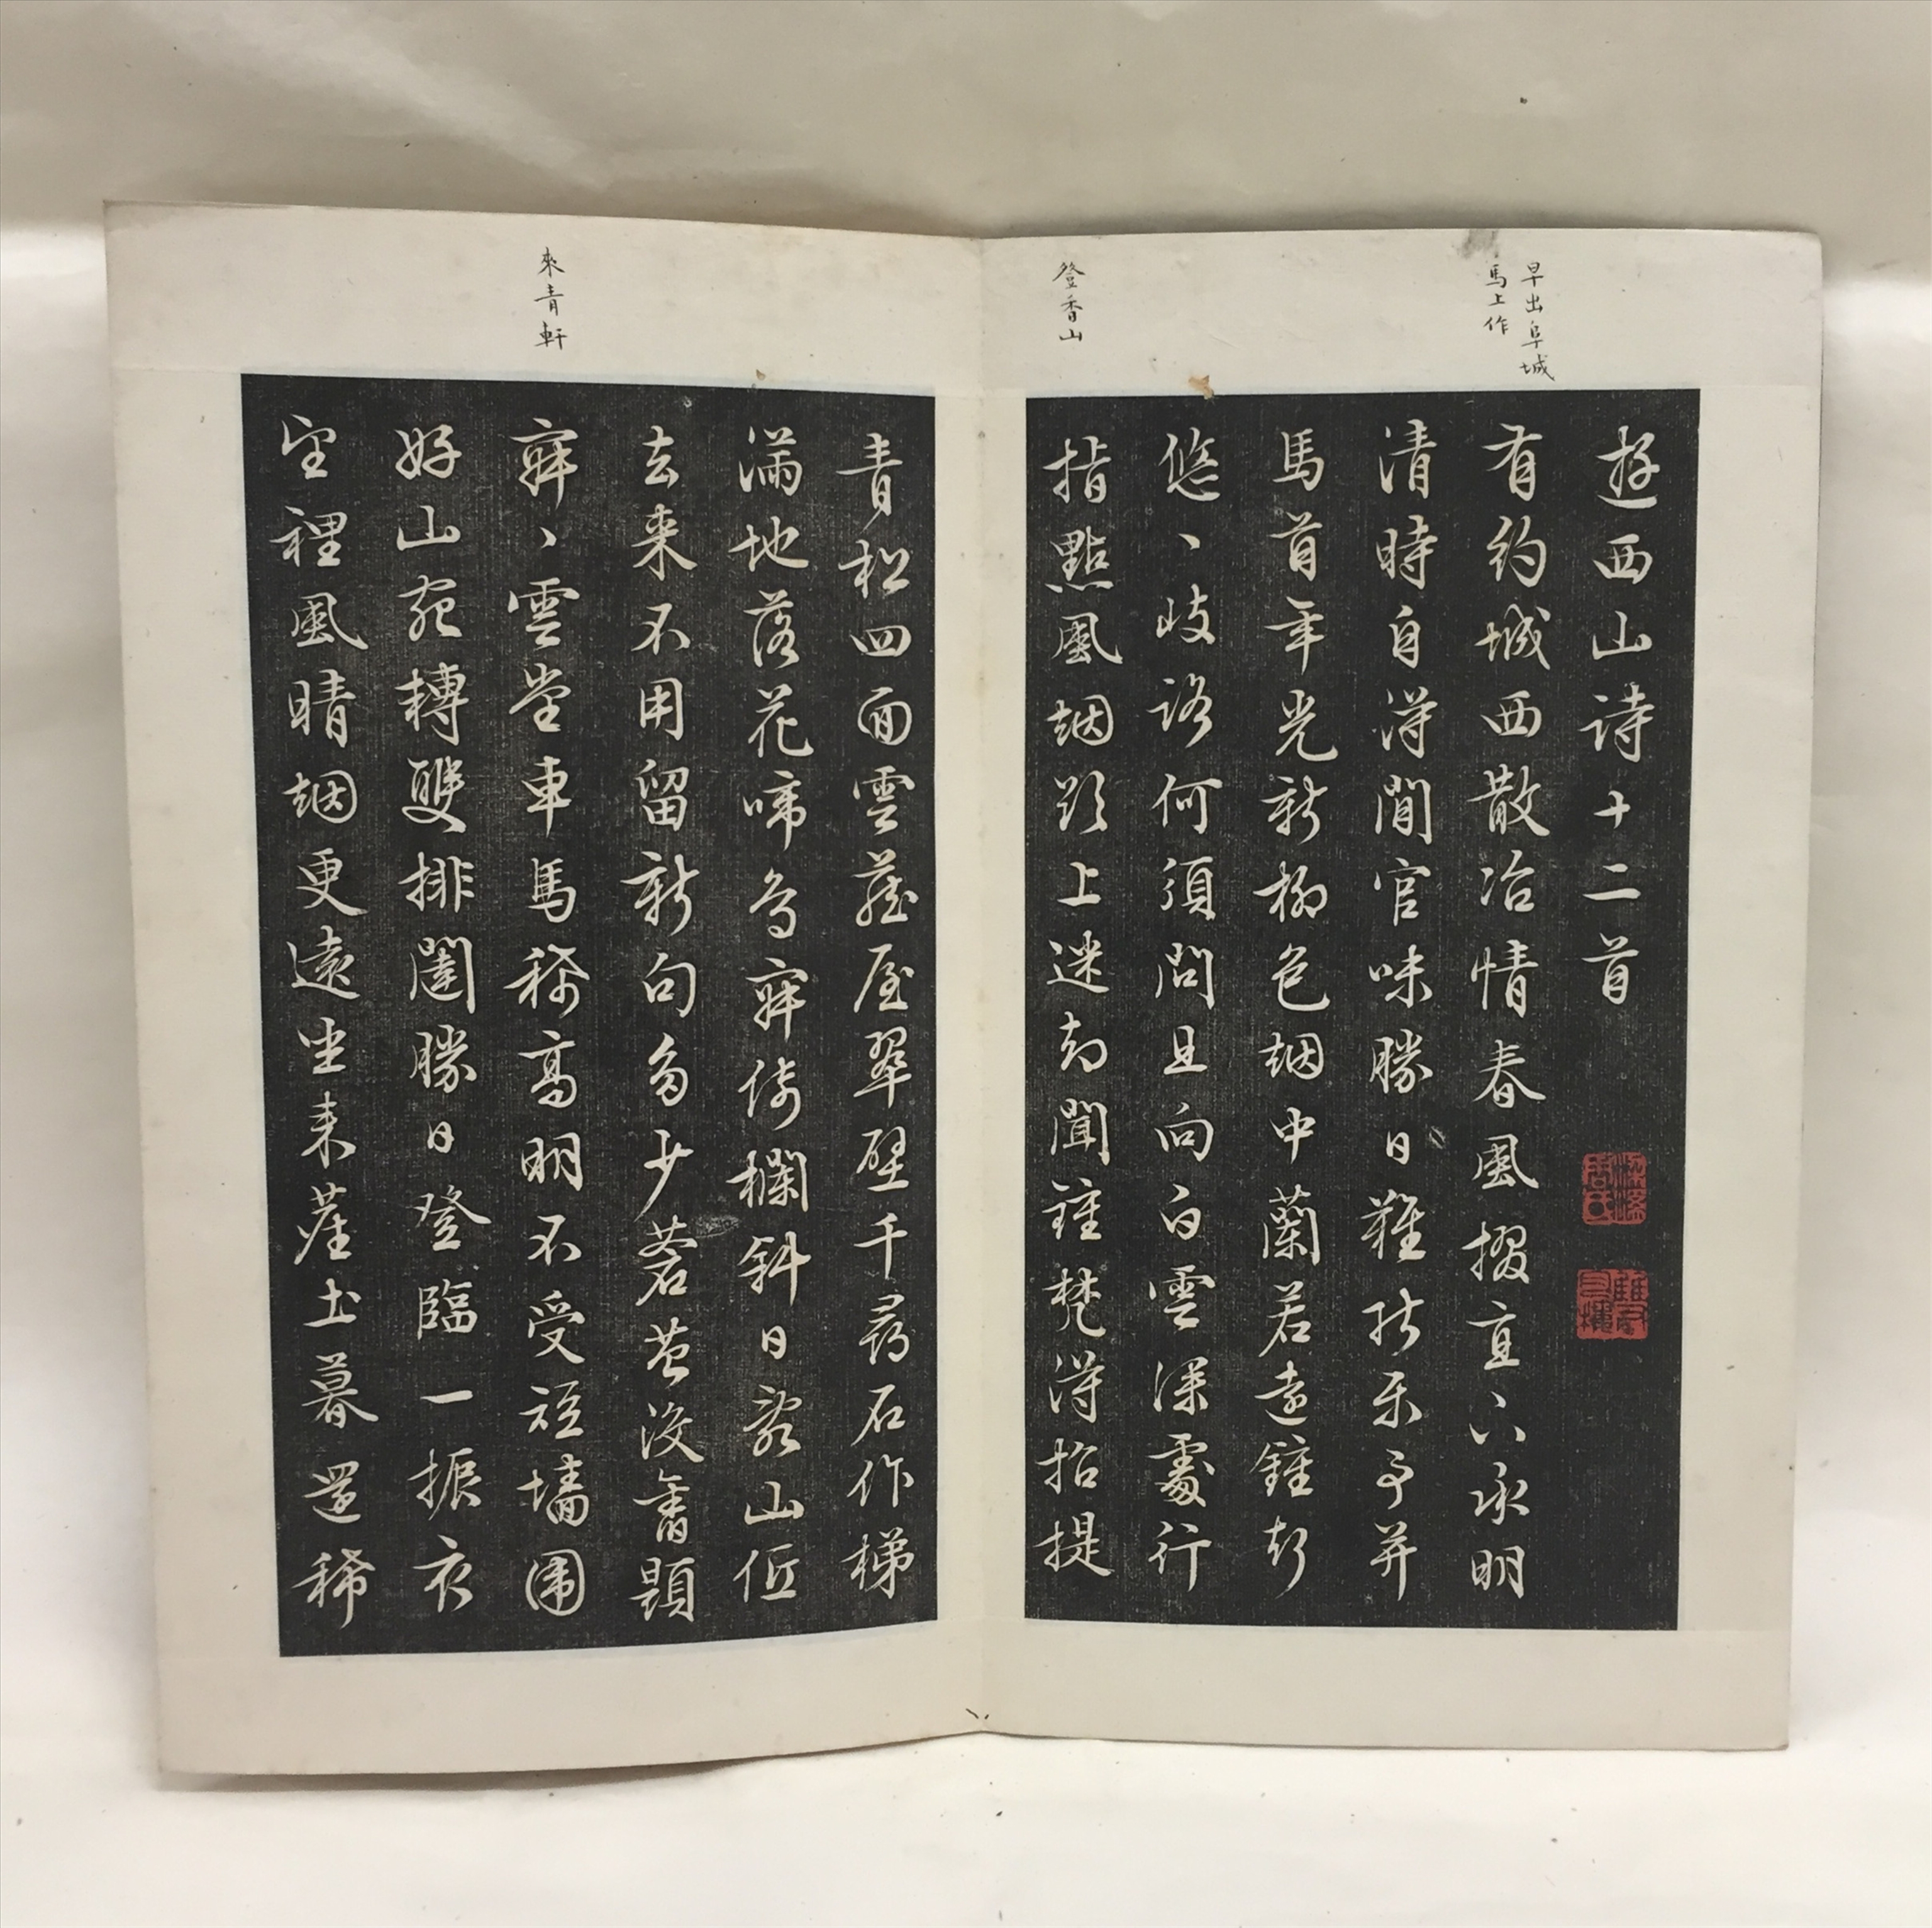 早出阜城
馬上作
登香山
來青軒
遊西山詩十二首
有約城西散冶情春風掇直下承明
清時自得閒官味勝日難能樂事并
馬首年光新柳色烟中蘭若遠鐘聲
悠、岐路何須問且向白雲深處行
指點風烟欲上迷却聞鐘梵得招提
青松四面雲藏屋翠壁千尋石作梯
滿地落花啼鳥寂倚欄斜日亂山低
去來不用留新句多少蒼苔沒舊題
寂、雲堂車馬稀高明不受短墻圍
好山宛轉雙排闥勝日登臨一振衣
望裡風晴烟更遠坐來崖土暮還稀